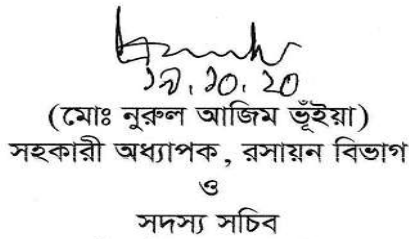 ১৯.১০.২০
(মোঃ নুরুল আজিম ভূঁইয়া)
সহকারী অধ্যাপক, রসায়ন বিভাগ
ও
সদস্য সচিব